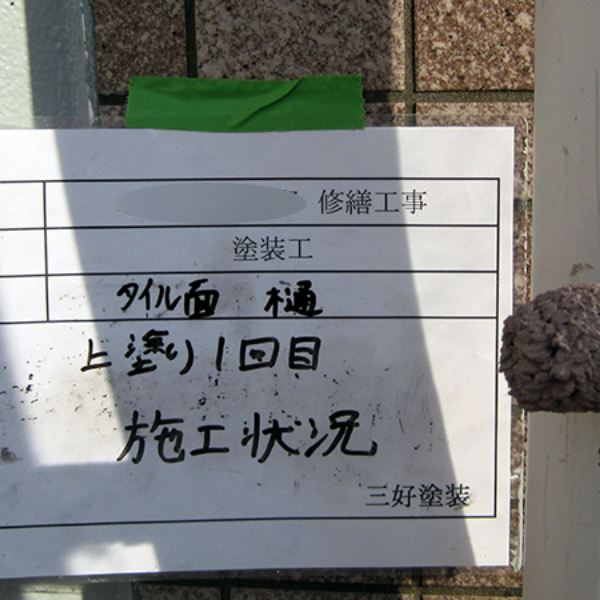 修繕工事
塗装工
タイル面 樋
上塗り1回目
施工状況
三好塗装